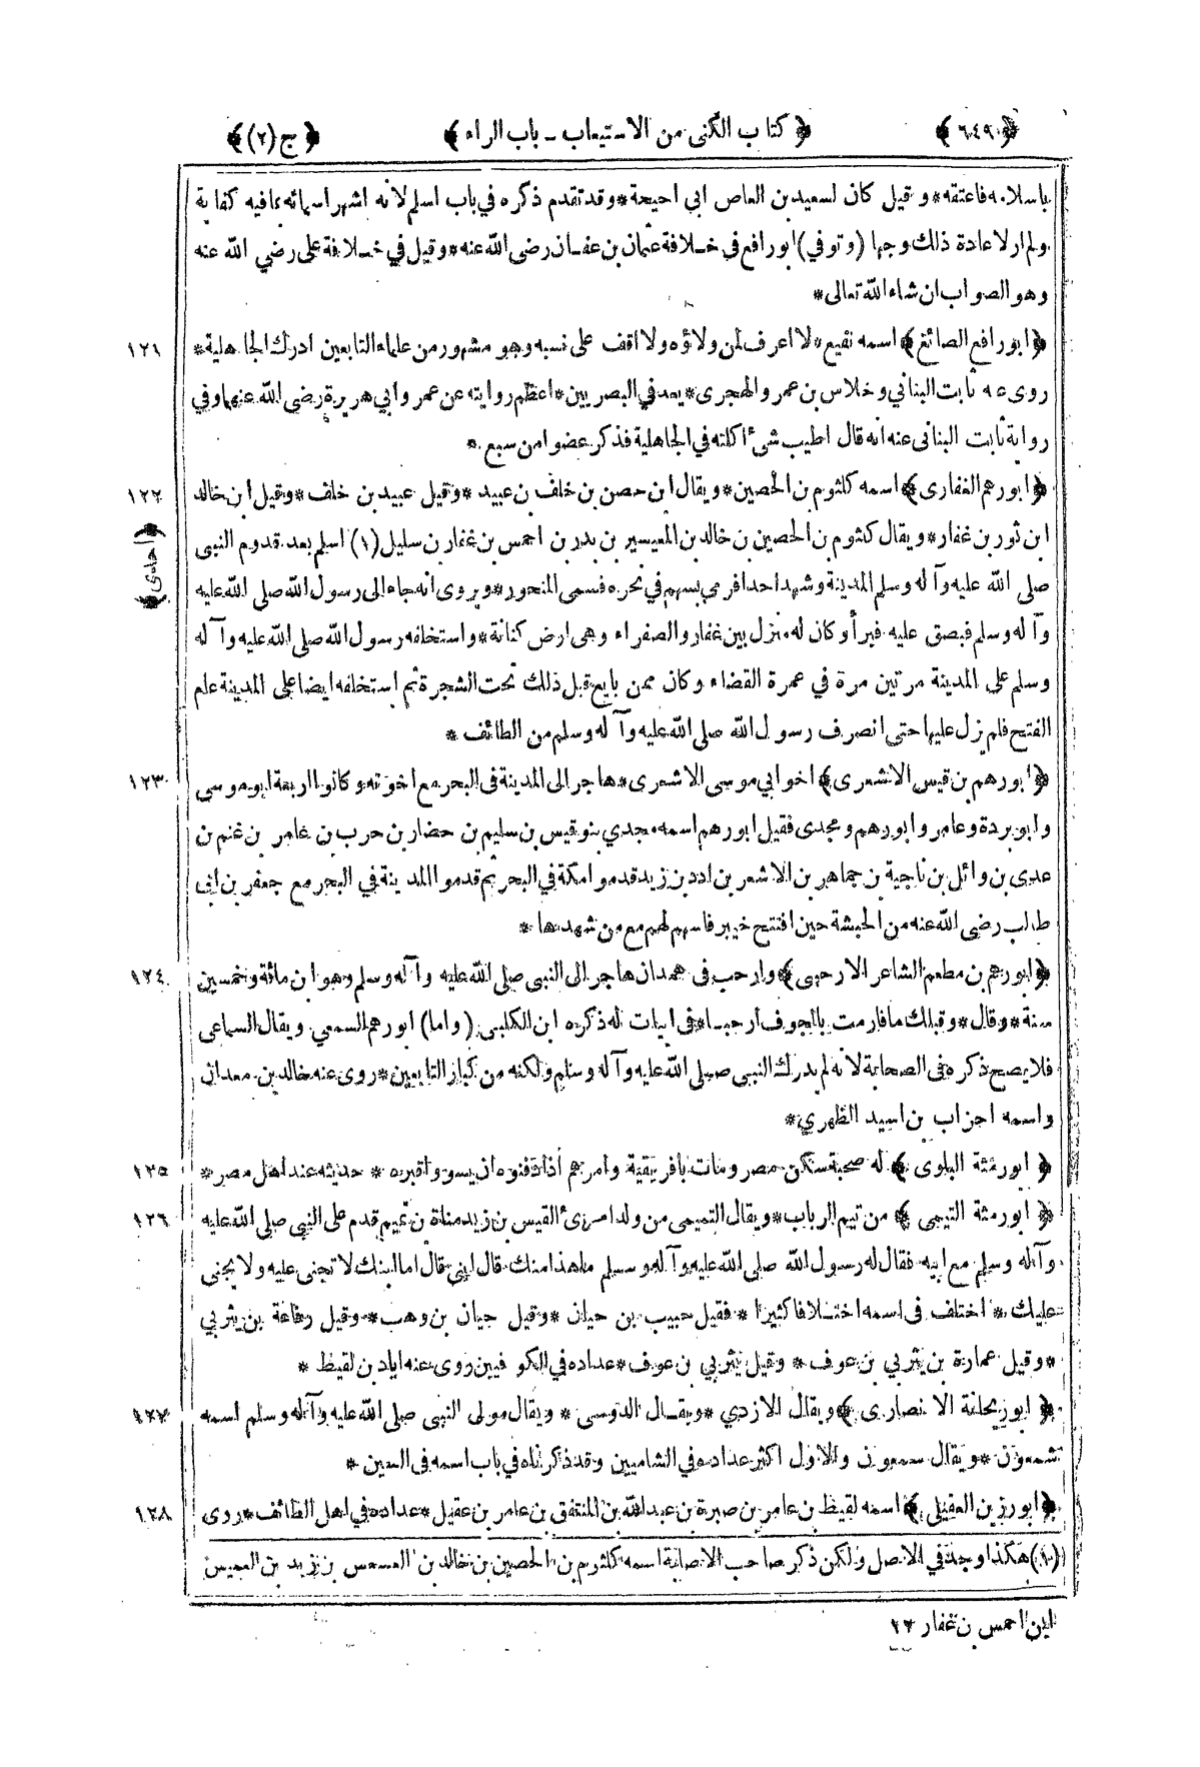 ﴿٦٤٩﴾ ﴿كتاب الكنى من الاستيعاب ـ باب الراء﴾ ﴿ج(٢)﴾
باسلامه فاعتقه*وقيل كان لسعيد بن العاص ابي احيحة*وقد تقدم ذكره في باب اسلم لانه اشهر اسمائه بمافيه كفاية
ولم ار لاعادة ذلك وجها (وتوفي) ابورافع في خلافة عثمان بن عفان رضى الله عنه*وقيل في خلافة على رضي الله عنه
وهو الصواب ان شاء الله تعالى*
﴿ابورافع الصائغ﴾ اسمه نقيع*لا اعرف لمن ولاؤه ولا اقف على نسبه وهو مشهور من علماء التابعين ادرك الجاهلية* ١٢١
روى عنه ثابت البناني وخلاس بن عمر والهجرى*يعد في البصريين*اعظم روايته عن عمر وابي هريرة رضى الله عنهما وفي
رواية ثابت البنانى عنه انه قال اطيب شئ اكلته في الجاهلية فذكر عضوا من سبع*
﴿ابورهم الغفارى﴾ اسمه كلثوم بن الحصين*ويقال ابن حصن بن خلف بن عبيد*وقيل عبيد بن خلف*وقيل ابن خالد ١٢٢
ابن ثور بن غفار*ويقال كلثوم بن الحصين بن خالد بن المعيسير بن بدر بن احمس بن غفار بن سليل(١) اسلم بعد قدوم النبى
﴿احدى﴾
صلى الله عليه وآله وسلم المدينة وشهد احدا فرمي بسهم في نحره فسمى المنحور*ويروى انه جاء الى رسول الله صلى الله عليه
وآله وسلم فبصق عليه فبرأ وكان له منزل بين غفار والصفراء وهى ارض كنانة*واستخلفه رسول الله صلى الله عليه وآله
وسلم على المدينة مرتين مرة في عمرة القضاء وكان ممن بايع قبل ذلك تحت الشجرة ثم استخلفه ايضا على المدينة عام
الفتح فلم يزل عليها حتى انصرف رسول الله صلى الله عليه وآله وسلم من الطائف*
﴿ابورهم بن قيس الاشعرى﴾ اخو ابي موسى الاشعرى*هاجر الى المدينة فى البحر مع اخوته وكانوا اربعة ابوموسى ١٢٣
وابوبردة وعامر وابورهم ومجدى فقيل ابورهم اسمه مجدي بنو قيس بن سليم بن حضار بن حرب بن عامر بن غنم بن
عدى بن وائل بن ناجية بن جماهر بن الاشعر بن ادد بن زيد قدموا مكة في البحر ثم قدموا المدينة في البحر مع جعفر بن ابى
طالب رضى الله عنه من الحبشة حين افتتح خيبر فاسهم لهم مع من شهدها*
﴿ابورهم بن مطعم الشاعر الارحبى﴾ وارحب فى همدان هاجر الى النبى صلى الله عليه وآله وسلم وهو ابن مائة وخمسين ١٢٤
سنة*وقال*وقبلك ما فارمت بالجوف ارحبا*فى ابيات له ذكره ابن الكلبى (واما) ابورهم السمعي ويقال السماعى
فلا يصح ذكره فى الصحابة لانه لم يدرك النبى صلى الله عليه وآله وسلم ولكنه من كبار التابعين*روى عنه خالد بن معدان
واسمه احزاب بن اسيد الظهري*
﴿ابورمثة البلوى﴾ له صحبة سكن مصر ومات بافريقية وامرهم اذا دفنوه ان يسووا قبره*حديثه عند اهل مصر* ١٢٥
﴿ابورمثة التيمى﴾ من تيم الرباب*ويقال التميمى من ولد امرئ القيس بن زيد مناة بن تميم قدم على النبي صلى الله عليه ١٢٦
وآله وسلم مع ابيه فقال له رسول الله صلى الله عليه وآله وسلم ما هذا منك قال ابنى قال اما ابنك لا تجنى عليه ولا يجنى
عليك*اختلف فى اسمه اختلافا كثيرا*فقيل حبيب بن حيان*وقيل حيان بن وهب*وقيل رفاعة بن يثربي
*وقيل عمارة بن يثربي بن عوف*وقيل يثربي بن عوف*عداده في الكوفيين روى عنه اياد بن لقيط*
﴿ابوريحانة الانصارى﴾ ويقال الازدي*ويقال الدوسى*ويقال مولى النبى صلى الله عليه وآله وسلم اسمه ١٢٧
شمعون*ويقال سمعون والاول اكثر عداده في الشاميين وقد ذكرناه في باب اسمه فى السين*
﴿ابورزين العقيلى﴾ اسمه لقيط بن عامر بن صبرة بن عبدالله بن المنتفق بن عامر بن عقيل*عداده في اهل الطائف*روى ١٢٨
(١)هكذا وجد في الاصل ولكن ذكر صاحب الاصابة اسمه كلثوم بن الحصين بن خالد بن العسعس بن زيد بن العميس
ابن احمس بن غفار ١٢